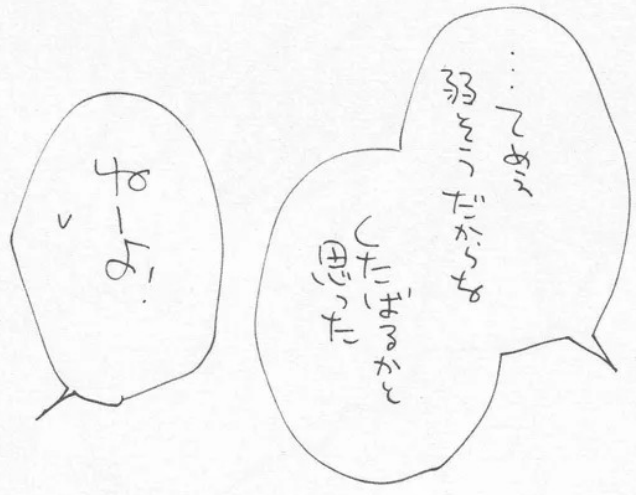 …てめぇ
弱そうだからな
くたばるかと
思った
ねーよ!